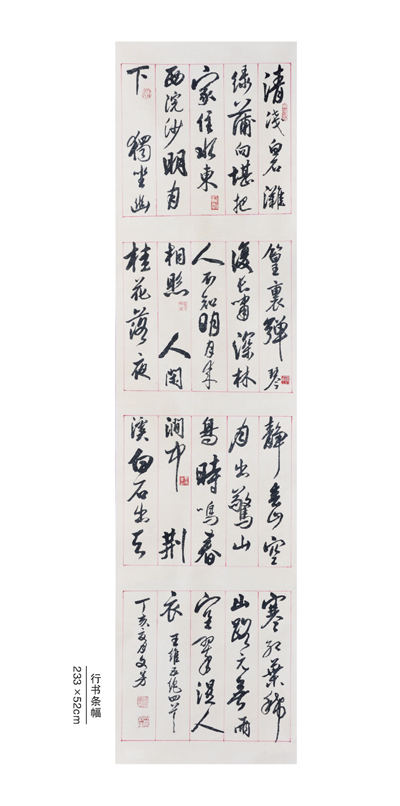 清浅白石滩
绿蒲向堪把
家住水東
西浣沙明月
下 獨坐幽
篁裏彈琴
復长嘯深林
人不知明月来
相照 人闲
桂花落夜
靜春山空
月出驚山
鳥時鸣春
澗中 荆
溪白石出天
寒红葉稀
山路元無雨
空翠湿人
衣 王维五绝四首
丁亥夏月文芳
行书条幅
233×52cm